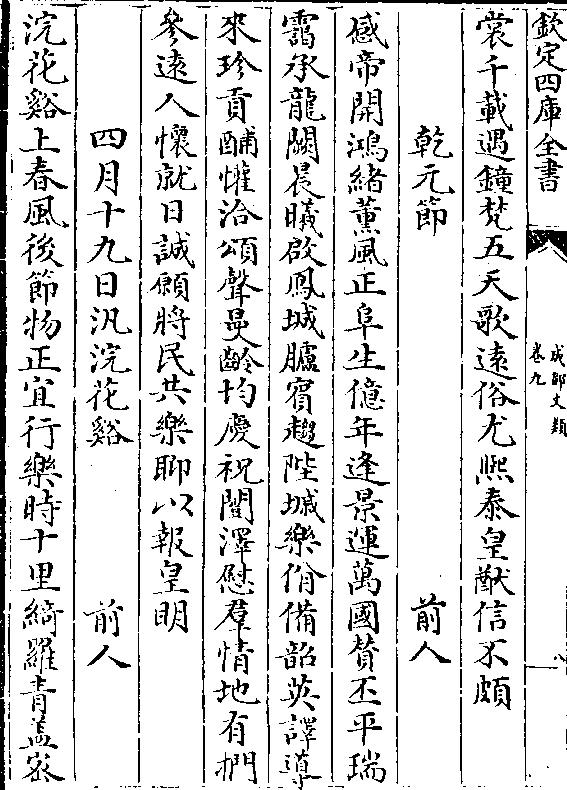 欽定四庫全書
成都文類
卷九
八
裳千載遇鐘梵五天歌遠俗尤熈泰皇猷信不頗
乾元節 前人
感帝開鴻緒薰風正阜生億年逢景運萬國贊丕平瑞
靄承龍闕晨曦啟鳳城臚賓趨陛城樂佾備韶英譯導
來珍貢酺懽洽頌聲曼齡均慶祝闓澤慰羣情地有捫
參逺人懷就日誠願將民共樂聊以報皇明
四月十九日汎浣花谿 前人
浣花谿上春風後節物正宜行樂時十里綺羅青葢宻